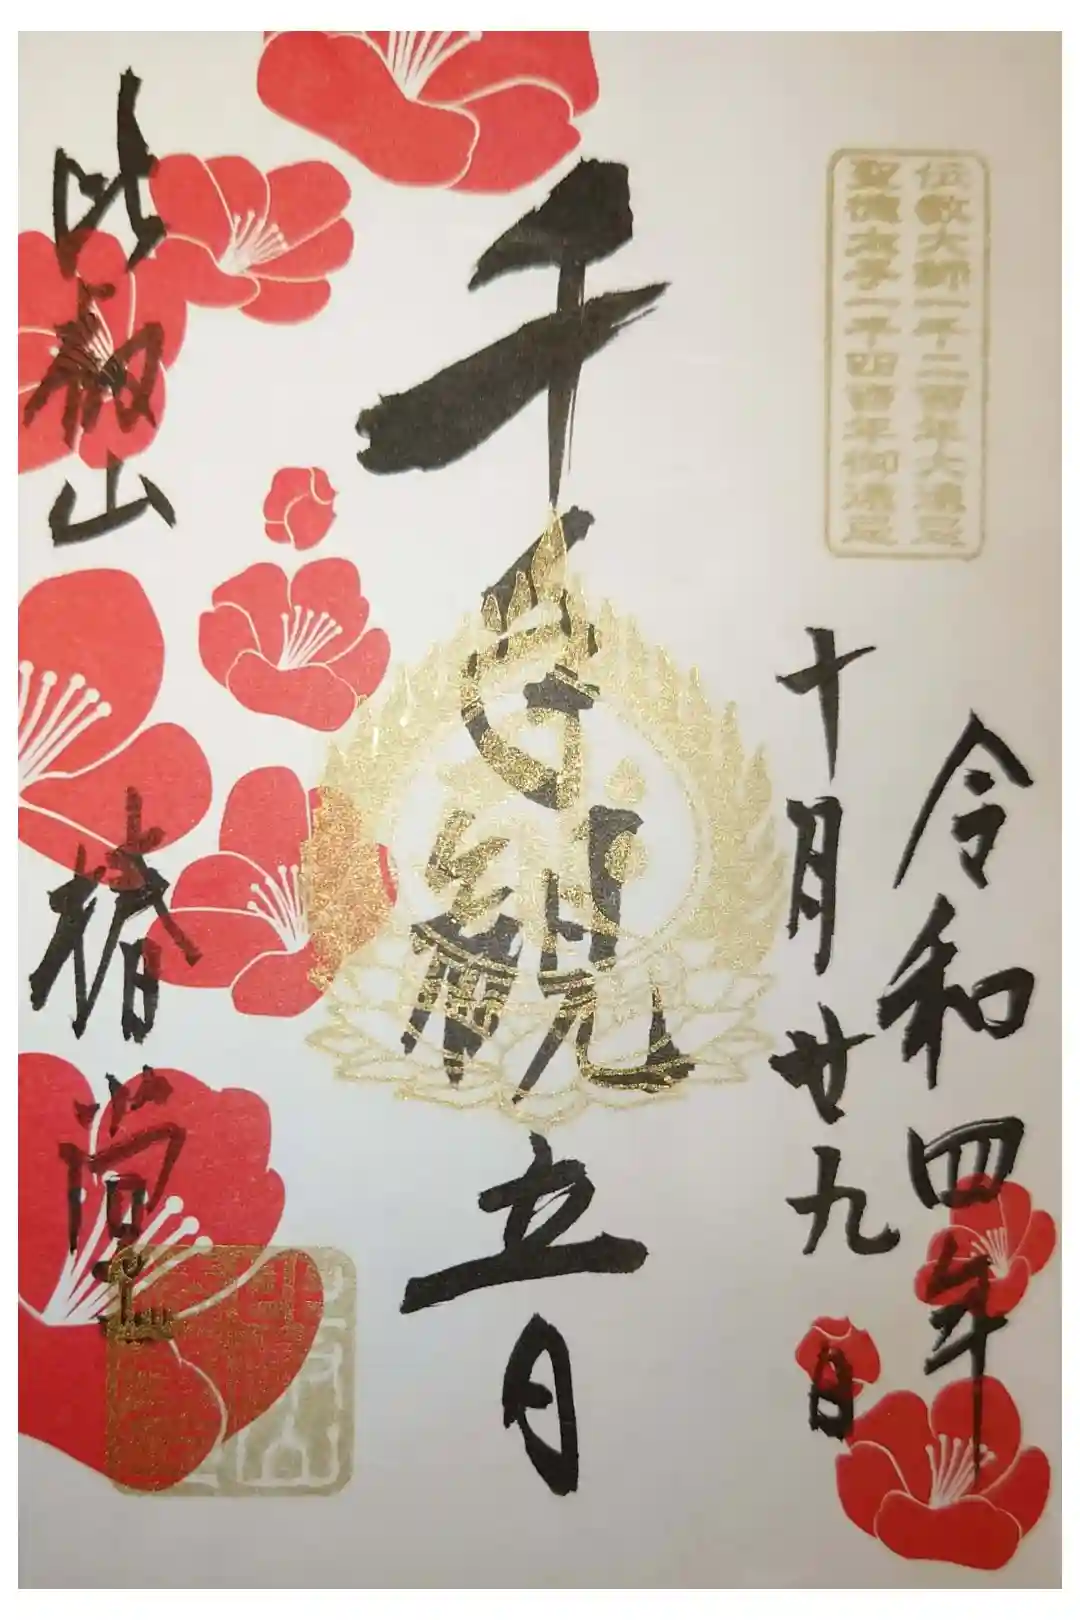 伝教大師一千二百年大遠忌
聖徳太子一千四百年御遠忌
令和四年
十月廿九日
千手観音
比叡山 椿堂